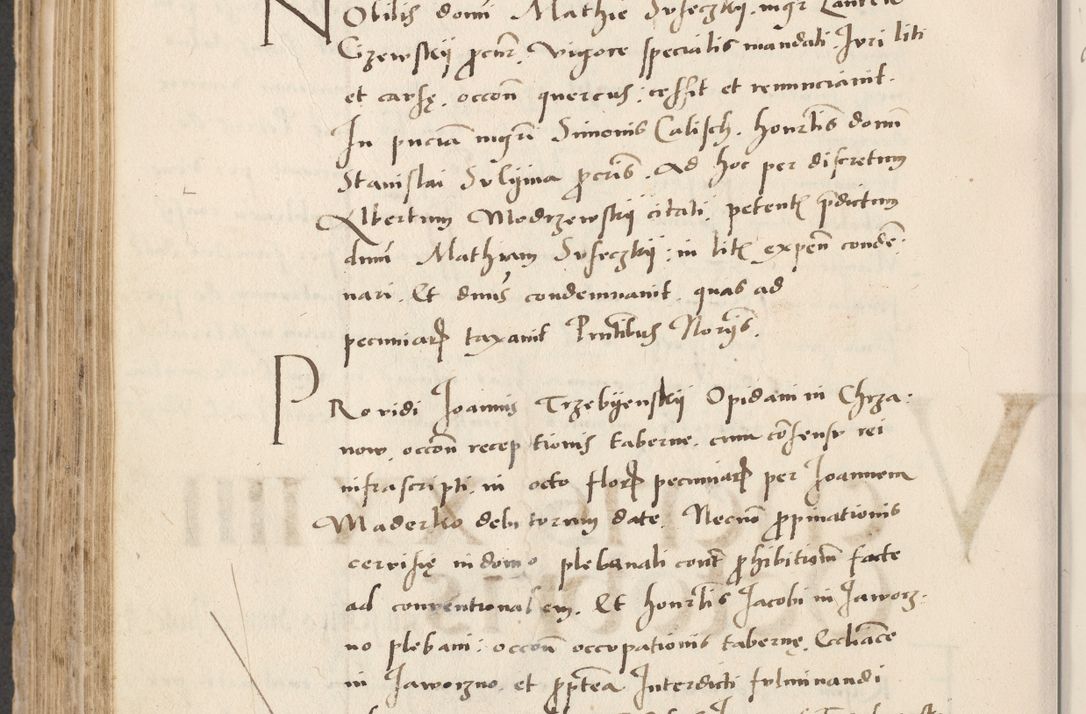 Nobilis domini Mathie Suseczkij. mgr Laurent
Gizewskij procur. Vigore specialis mandati. Juri liti
et causę. occon quercus: cessit et renunciavit.
In pnciā mgri Simonis Calisch. honrlis domi
Stanislai Sulijma procris. Ad hoc per discretum
Albertum Modrzewskij citati. petente prēdictum
dnm Mathiam Suseczkij: in lite expen conde:
nari. Et dnus condemnavit. quas ad
pecuniarp taxavit Prntibus Norijs.
PRovidi Joannis Trzebijenskij Opidani in Chrza:
now. occon receptionis taberne. cum consensu rei
infrascripti. in octo florp pecuniarp per Joannem
Maderko debitorum date. Necno propinationis
cervisię in domo plebanali contr prohibitionem facte
ad conventionalem. Et honrlis Jacobi in Jaworz:
no plebani: occon occupationis tabernę. Eccliasticę
in Jaworzno. et propterea Interdicti fulminandi